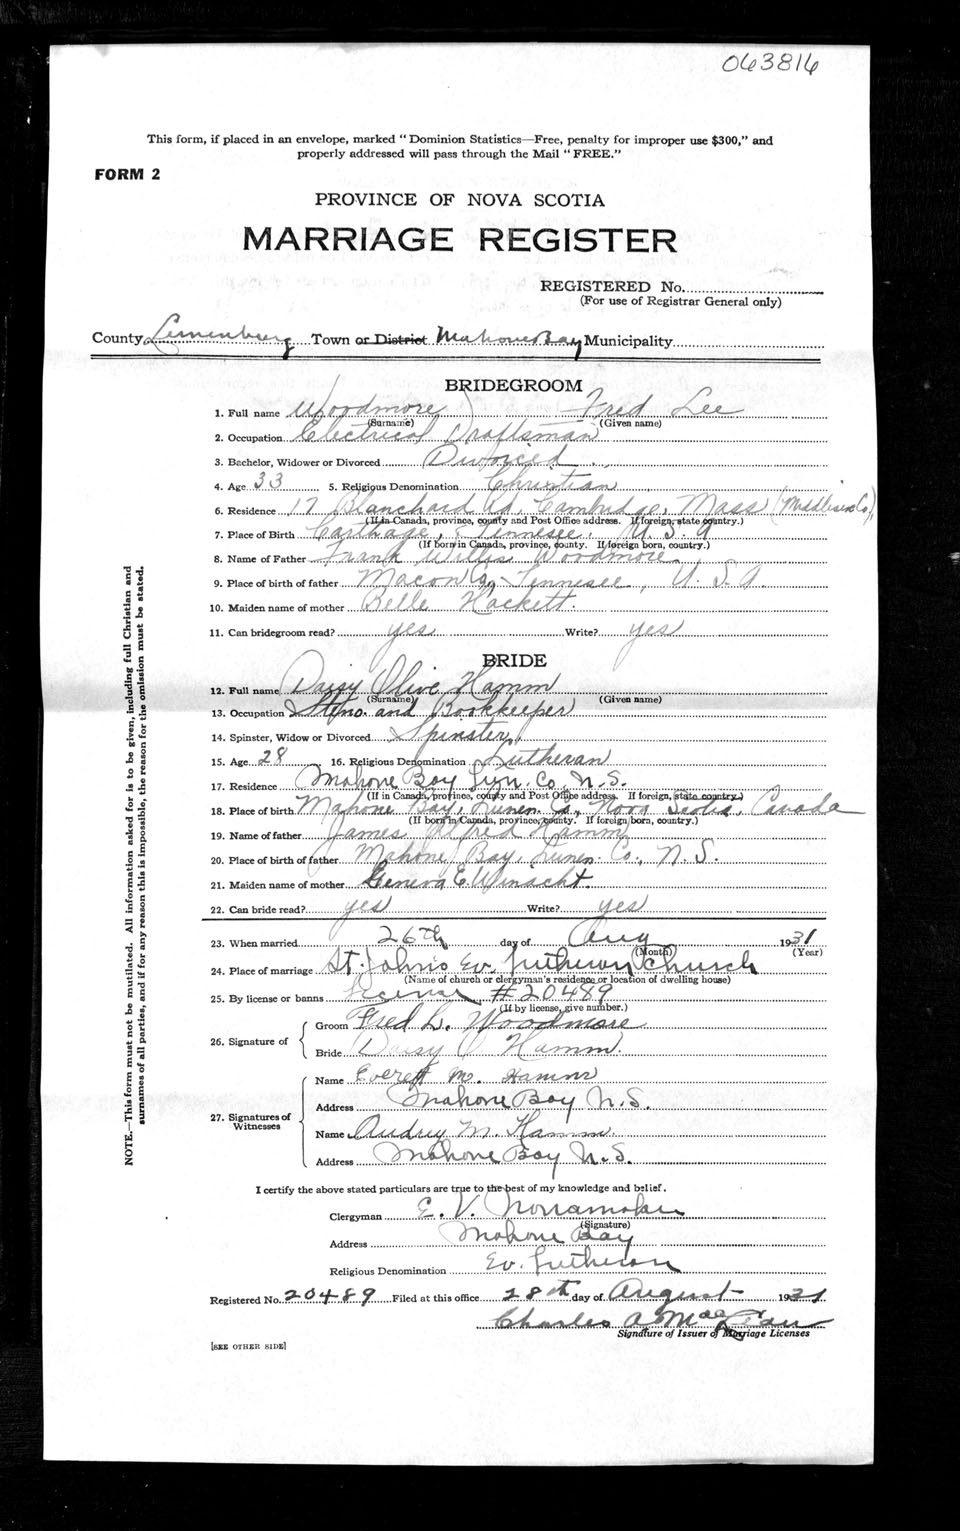 063816
This form, if placed in an envelope, marked "Dominion Statistics—Free, penalty for improper use $300," and
properly addressed will pass through the Mail "FREE."
FORM 2
PROVINCE OF NOVA SCOTIA
MARRIAGE REGISTER
REGISTERED No.
(For use of Registrar General only)
County Lunenburg Town or District Mahone Bay Municipality
BRIDEGROOM
1. Full name Woodmore Fred Lee
(Surname) (Given name)
2. Occupation Electrical Draftsman
3. Bachelor, Widower or Divorced Divorced
4. Age 33 5. Religious Denomination Christian
6. Residence 17 Blanchard Rd, Cambridge, Mass (Middlesex Co),
(If in Canada, province, county and Post Office address. If foreign, state country.)
7. Place of Birth Carthage, Tennesee. U.S.A
(If born in Canada, province, county. If foreign born, country.)
8. Name of Father Frank Willis Woodmore
9. Place of birth of father Macon Co, Tennesee, U.S.A.
10. Maiden name of mother Belle Hackett.
11. Can bridegroom read? yes Write? yes
BRIDE
12. Full name Daisy Olive Hamm
(Surname) (Given name)
13. Occupation Steno. and Bookkeeper
14. Spinster, Widow or Divorced Spinster
15. Age 28 16. Religious Denomination Lutheran
17. Residence Mahone Bay Lun. Co. N.S.
(If in Canada, province, county and Post Office address. If foreign, state country.)
18. Place of birth Mahone Bay, Lunen. Co., Nova Scotia, Canada
(If born in Canada, province, county. If foreign born, country.)
19. Name of father James Alfred Hamm
20. Place of birth of father Mahone Bay, Lunen. Co., N.S.
21. Maiden name of mother Geneva E. Winacht.
22. Can bride read? yes Write? yes
23. When married 26th day of Aug 1931
(Month) (Year)
24. Place of marriage St. John's Ev. Lutheran Church
(Name of church or clergyman's residence or location of dwelling house)
25. By license or banns License #20489
(If by license, give number.)
26. Signature of
Groom Fred L. Woodmore
Bride Daisy O Hamm.
27. Signatures of Witnesses
Name Everett M. Hamm
Address Mahone Bay N.S.
Name Audrey M. Hamm.
Address Mahone Bay N.S.
I certify the above stated particulars are true to the best of my knowledge and belief.
Clergyman E. V. Nonamaker
(Signature)
Address Mahone Bay
Religious Denomination Ev. Lutheran
Registered No. 20489 Filed at this office 28th day of August 1931
Charles A.
Signature of Issuer of Marriage Licenses
[SEE OTHER SIDE]
NOTE.—This form must not be mutilated. All information asked for is to be given, including full Christian and
surnames of all parties, and if for any reason this is impossible, the reason for the omission must be stated.